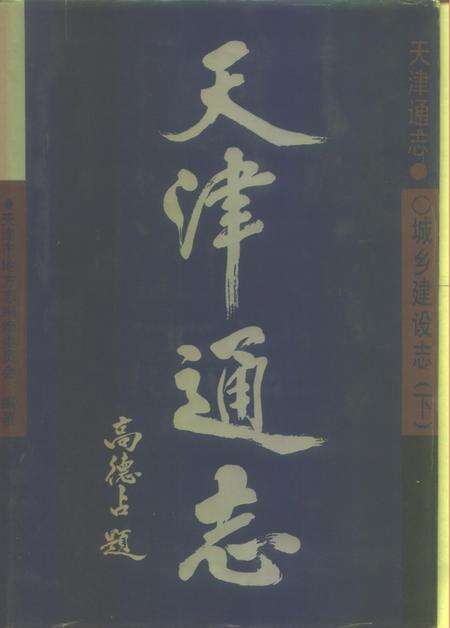 天津通志
高德占题
天津通志●
○城乡建设志(下)
●天津市地方志编修委员会 编著